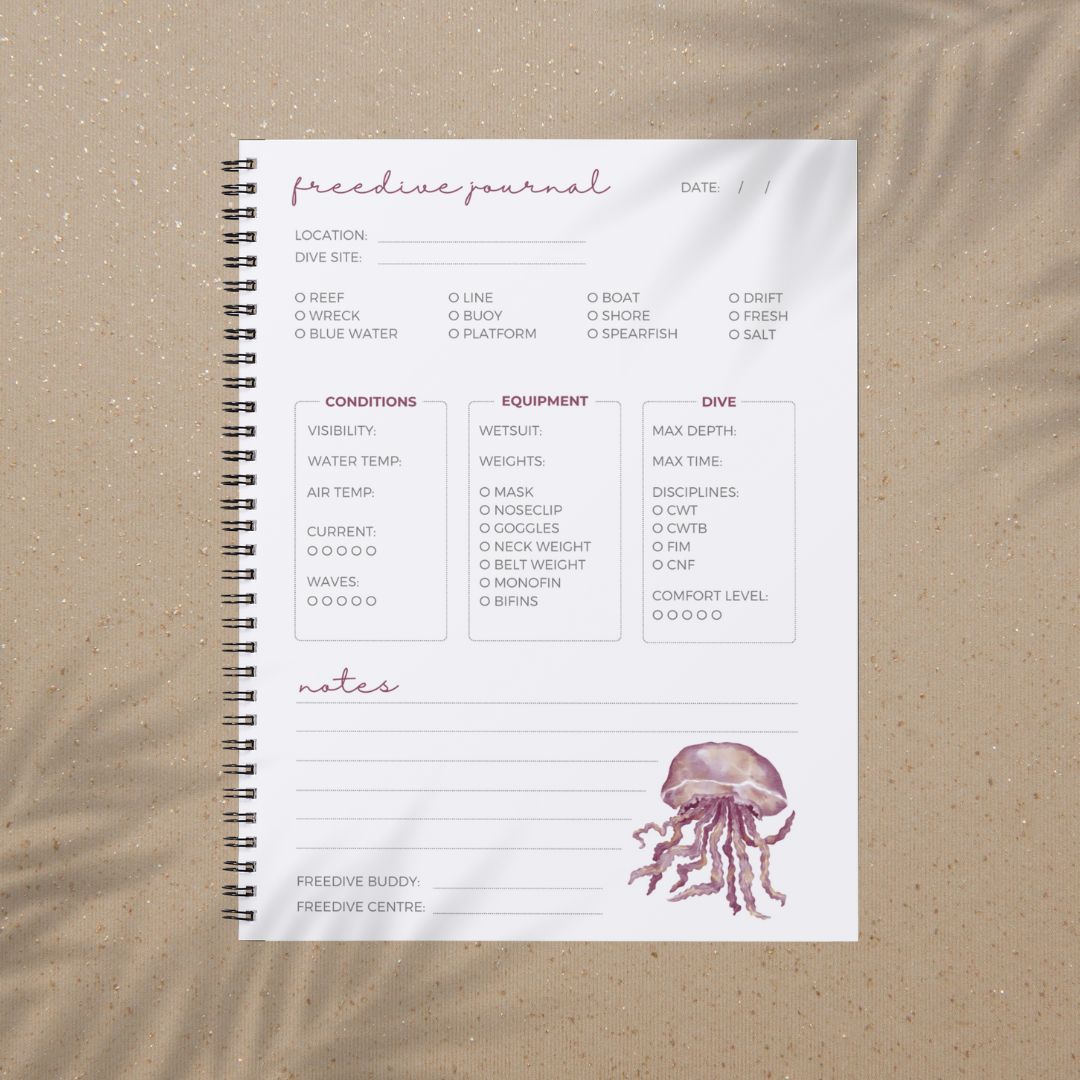 freedive journal DATE: / /
LOCATION:
DIVE SITE:
O REEF O LINE O BOAT O DRIFT
O WRECK O BUOY O SHORE O FRESH
O BLUE WATER O PLATFORM O SPEARFISH O SALT
CONDITIONS
VISIBILITY:
WATER TEMP:
AIR TEMP:
CURRENT:
O O O O O
WAVES:
O O O O O
EQUIPMENT
WETSUIT:
WEIGHTS:
O MASK
O NOSECLIP
O GOGGLES
O NECK WEIGHT
O BELT WEIGHT
O MONOFIN
O BIFINS
DIVE
MAX DEPTH:
MAX TIME:
DISCIPLINES:
O CWT
O CWTB
O FIM
O CNF
COMFORT LEVEL:
O O O O O
notes
FREEDIVE BUDDY:
FREEDIVE CENTRE: